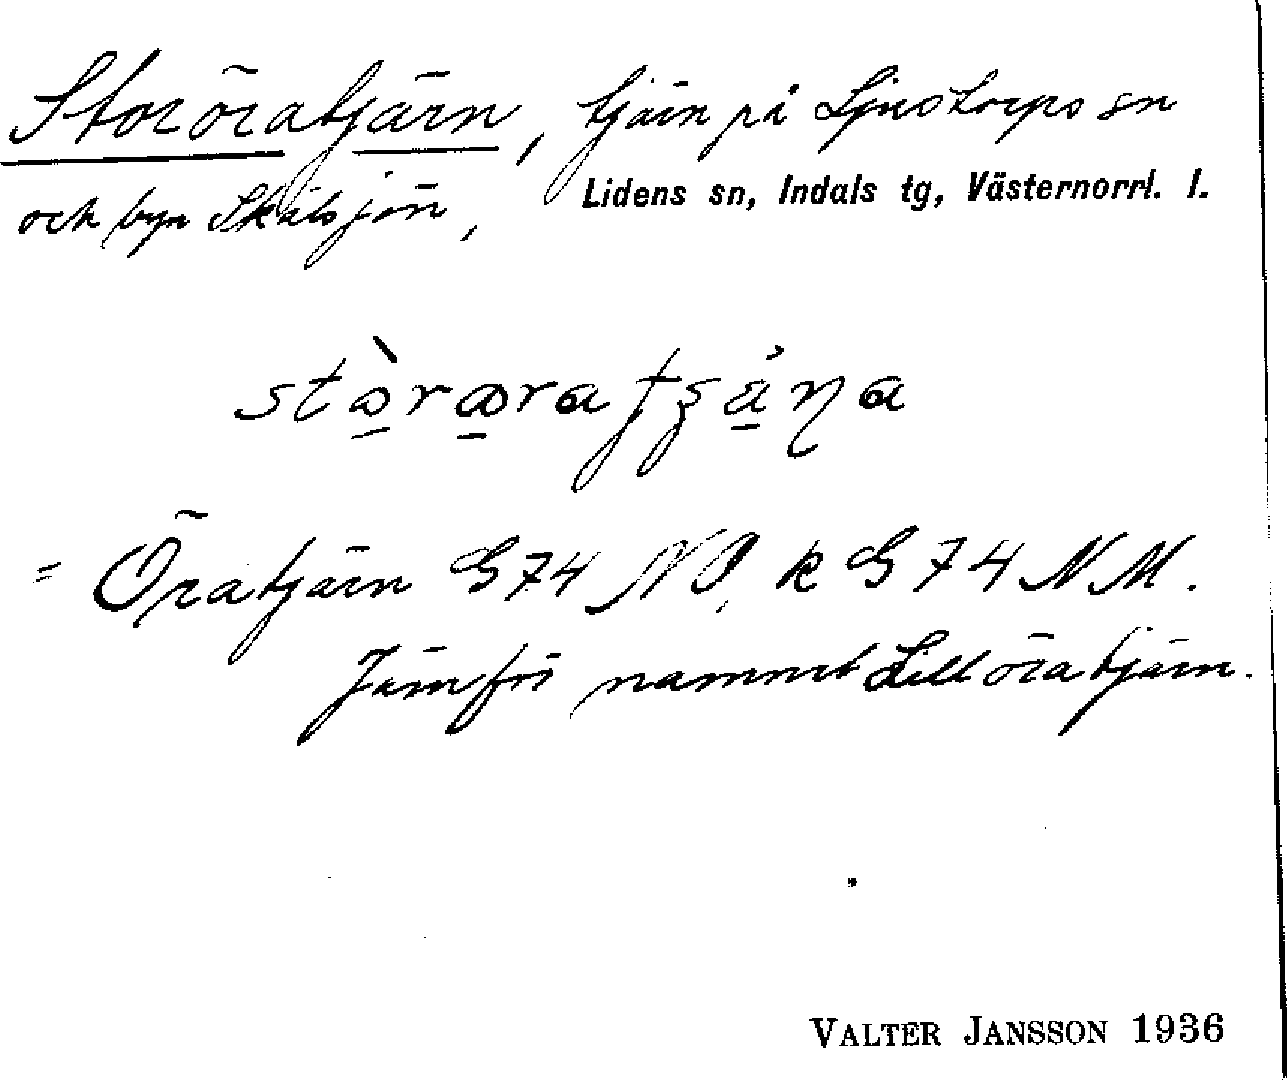 Storöratjärn, tjärn på Ljustorps sn
och byn Skälsjön, Lidens sn, Indals tg, Västernorrl. l.
= Öratjärn G 74 NO, k G 74 NM.
Jämför namnet Lillöratjärn.
VALTER JANSSON 1936